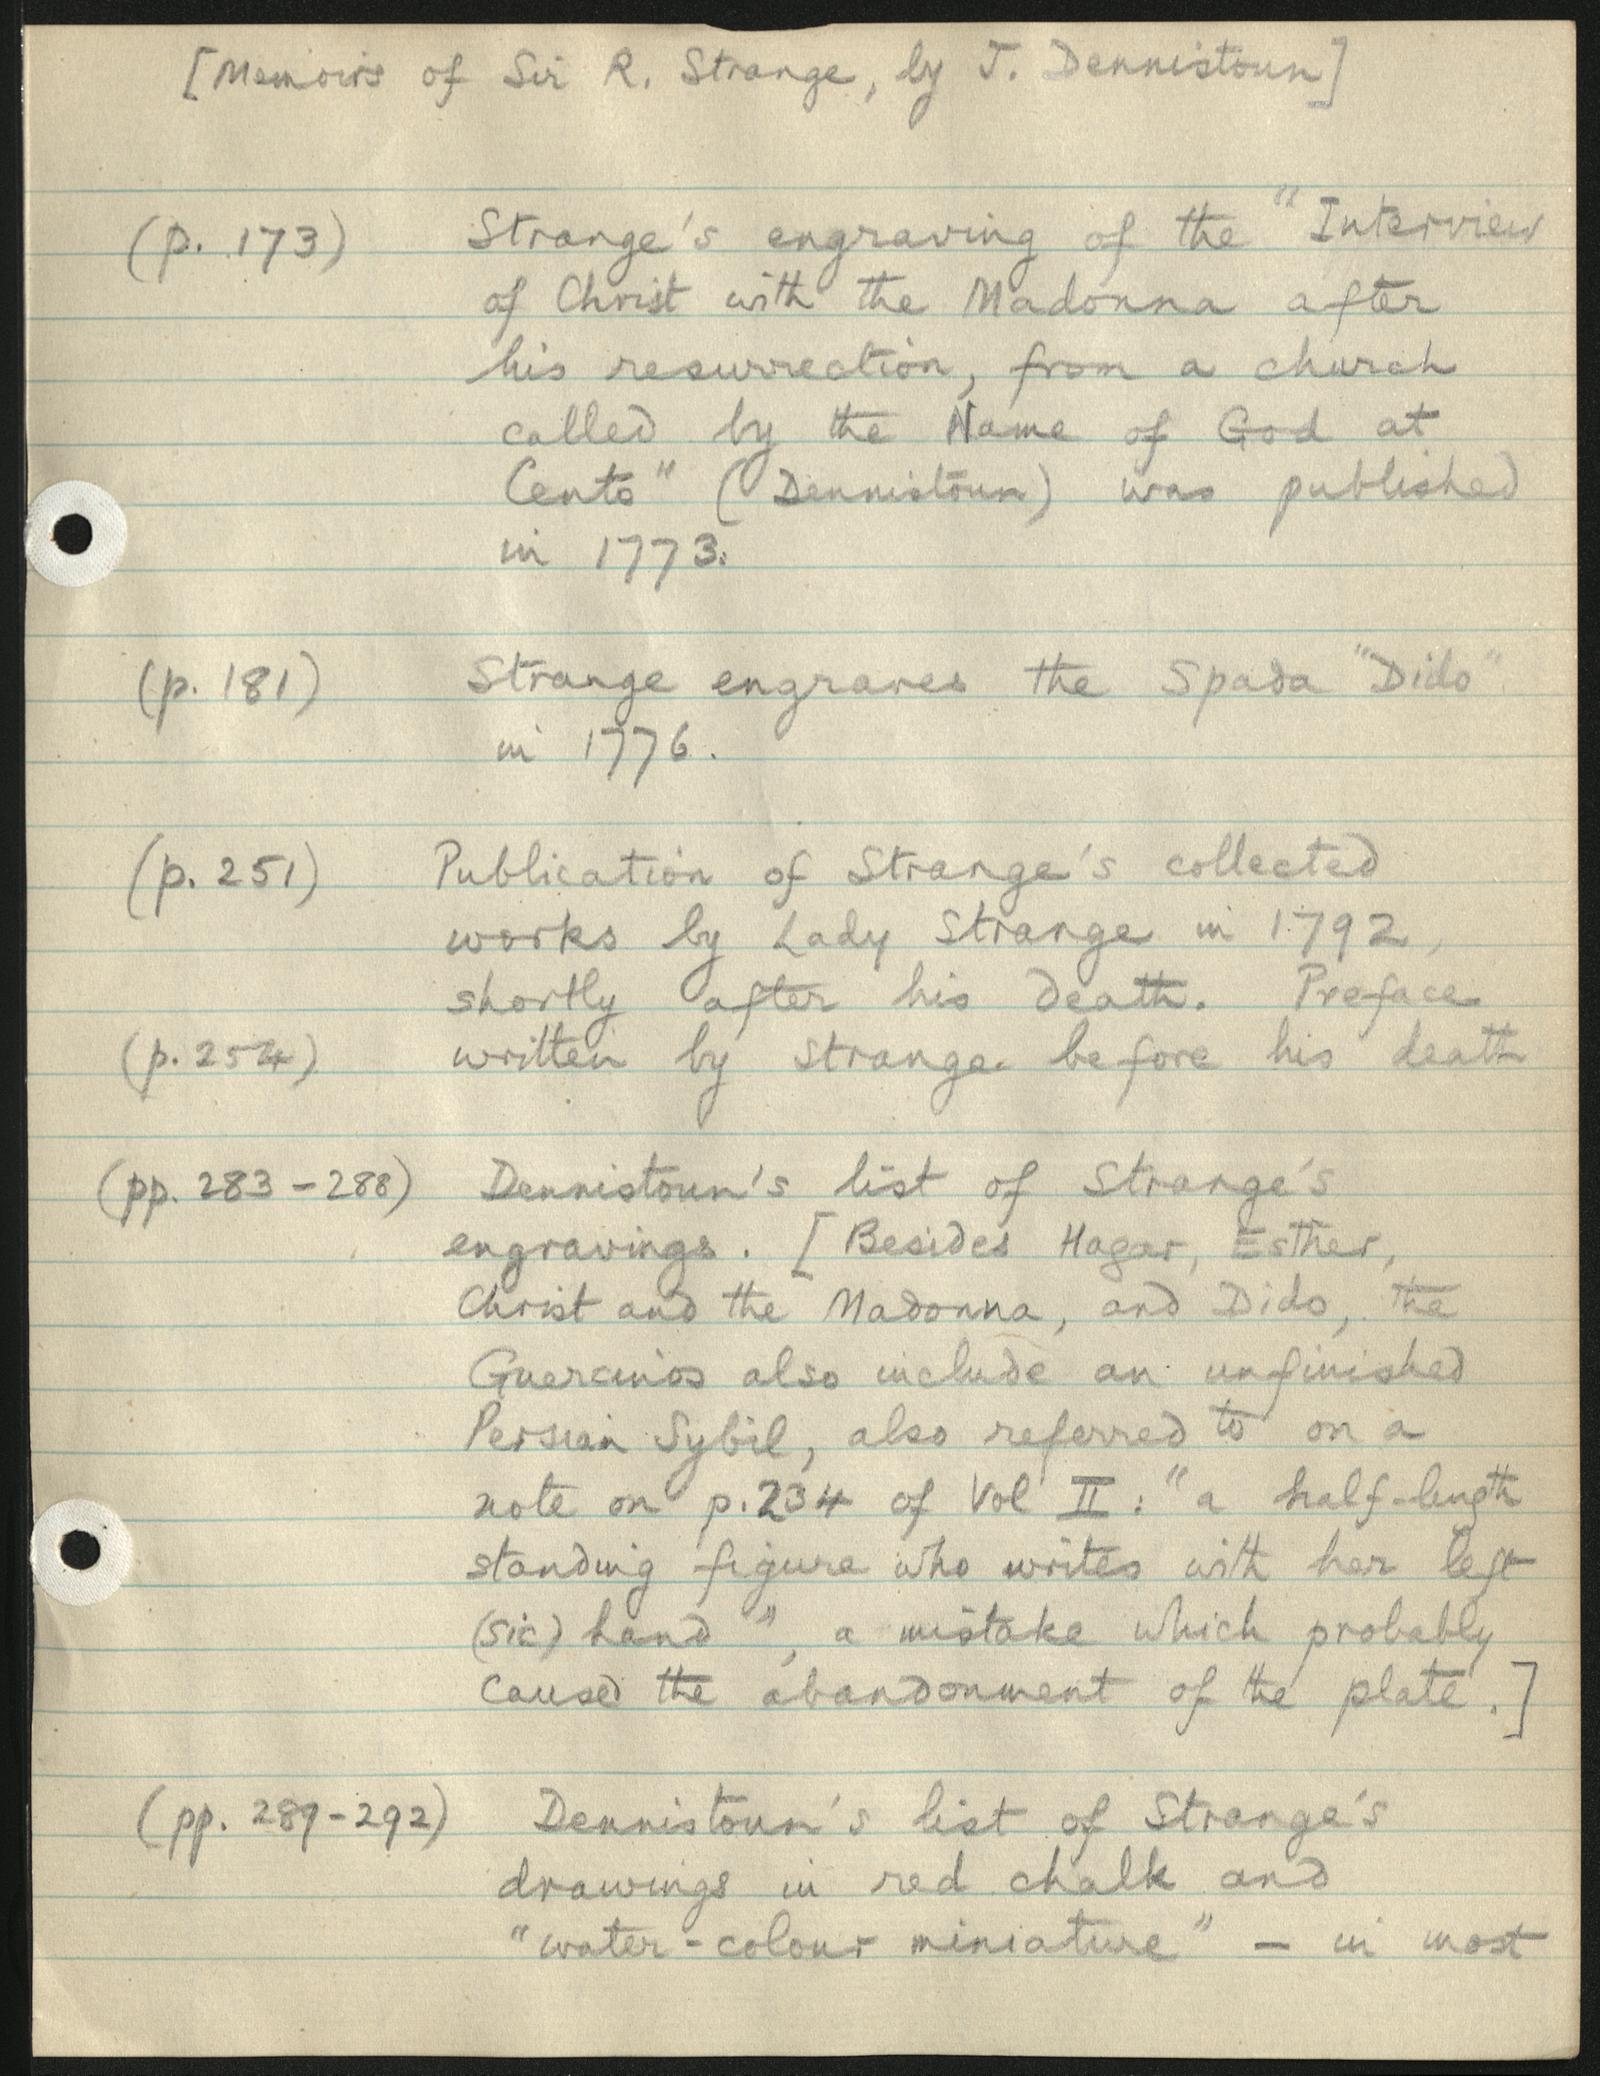 [Memoirs of Sir R. Strange, by J. Dennistoun]
(p. 173) Strange's engraving of the "Interview
of Christ with the Madonna after
his resurrection, from a church
called by the Name of God at
Cento" (Dennistoun) was published
in 1773.
(p. 181) Strange engraves the Spada "Dido"
in 1776.
(p. 251) Publication of Strange's collected
works by Lady Strange in 1792,
shortly after his death. Preface
(p. 254) written by Strange before his death
(pp. 283-288) Dennistoun's list of Strange's
engravings. [Besides Hagar, Esther,
Christ and the Madonna, and Dido, the
Guercinos also include an unfinished
Persian Sybil, also referred to on a
note on p. 234 of Vol II: "a half-length
standing figure who writes with her left
(sic) hand", a mistake which probably
caused the abandonment of the plate.]
(pp. 289-292) Dennistoun's list of Strange's
drawings in red chalk and
"water-colour miniature" – in most